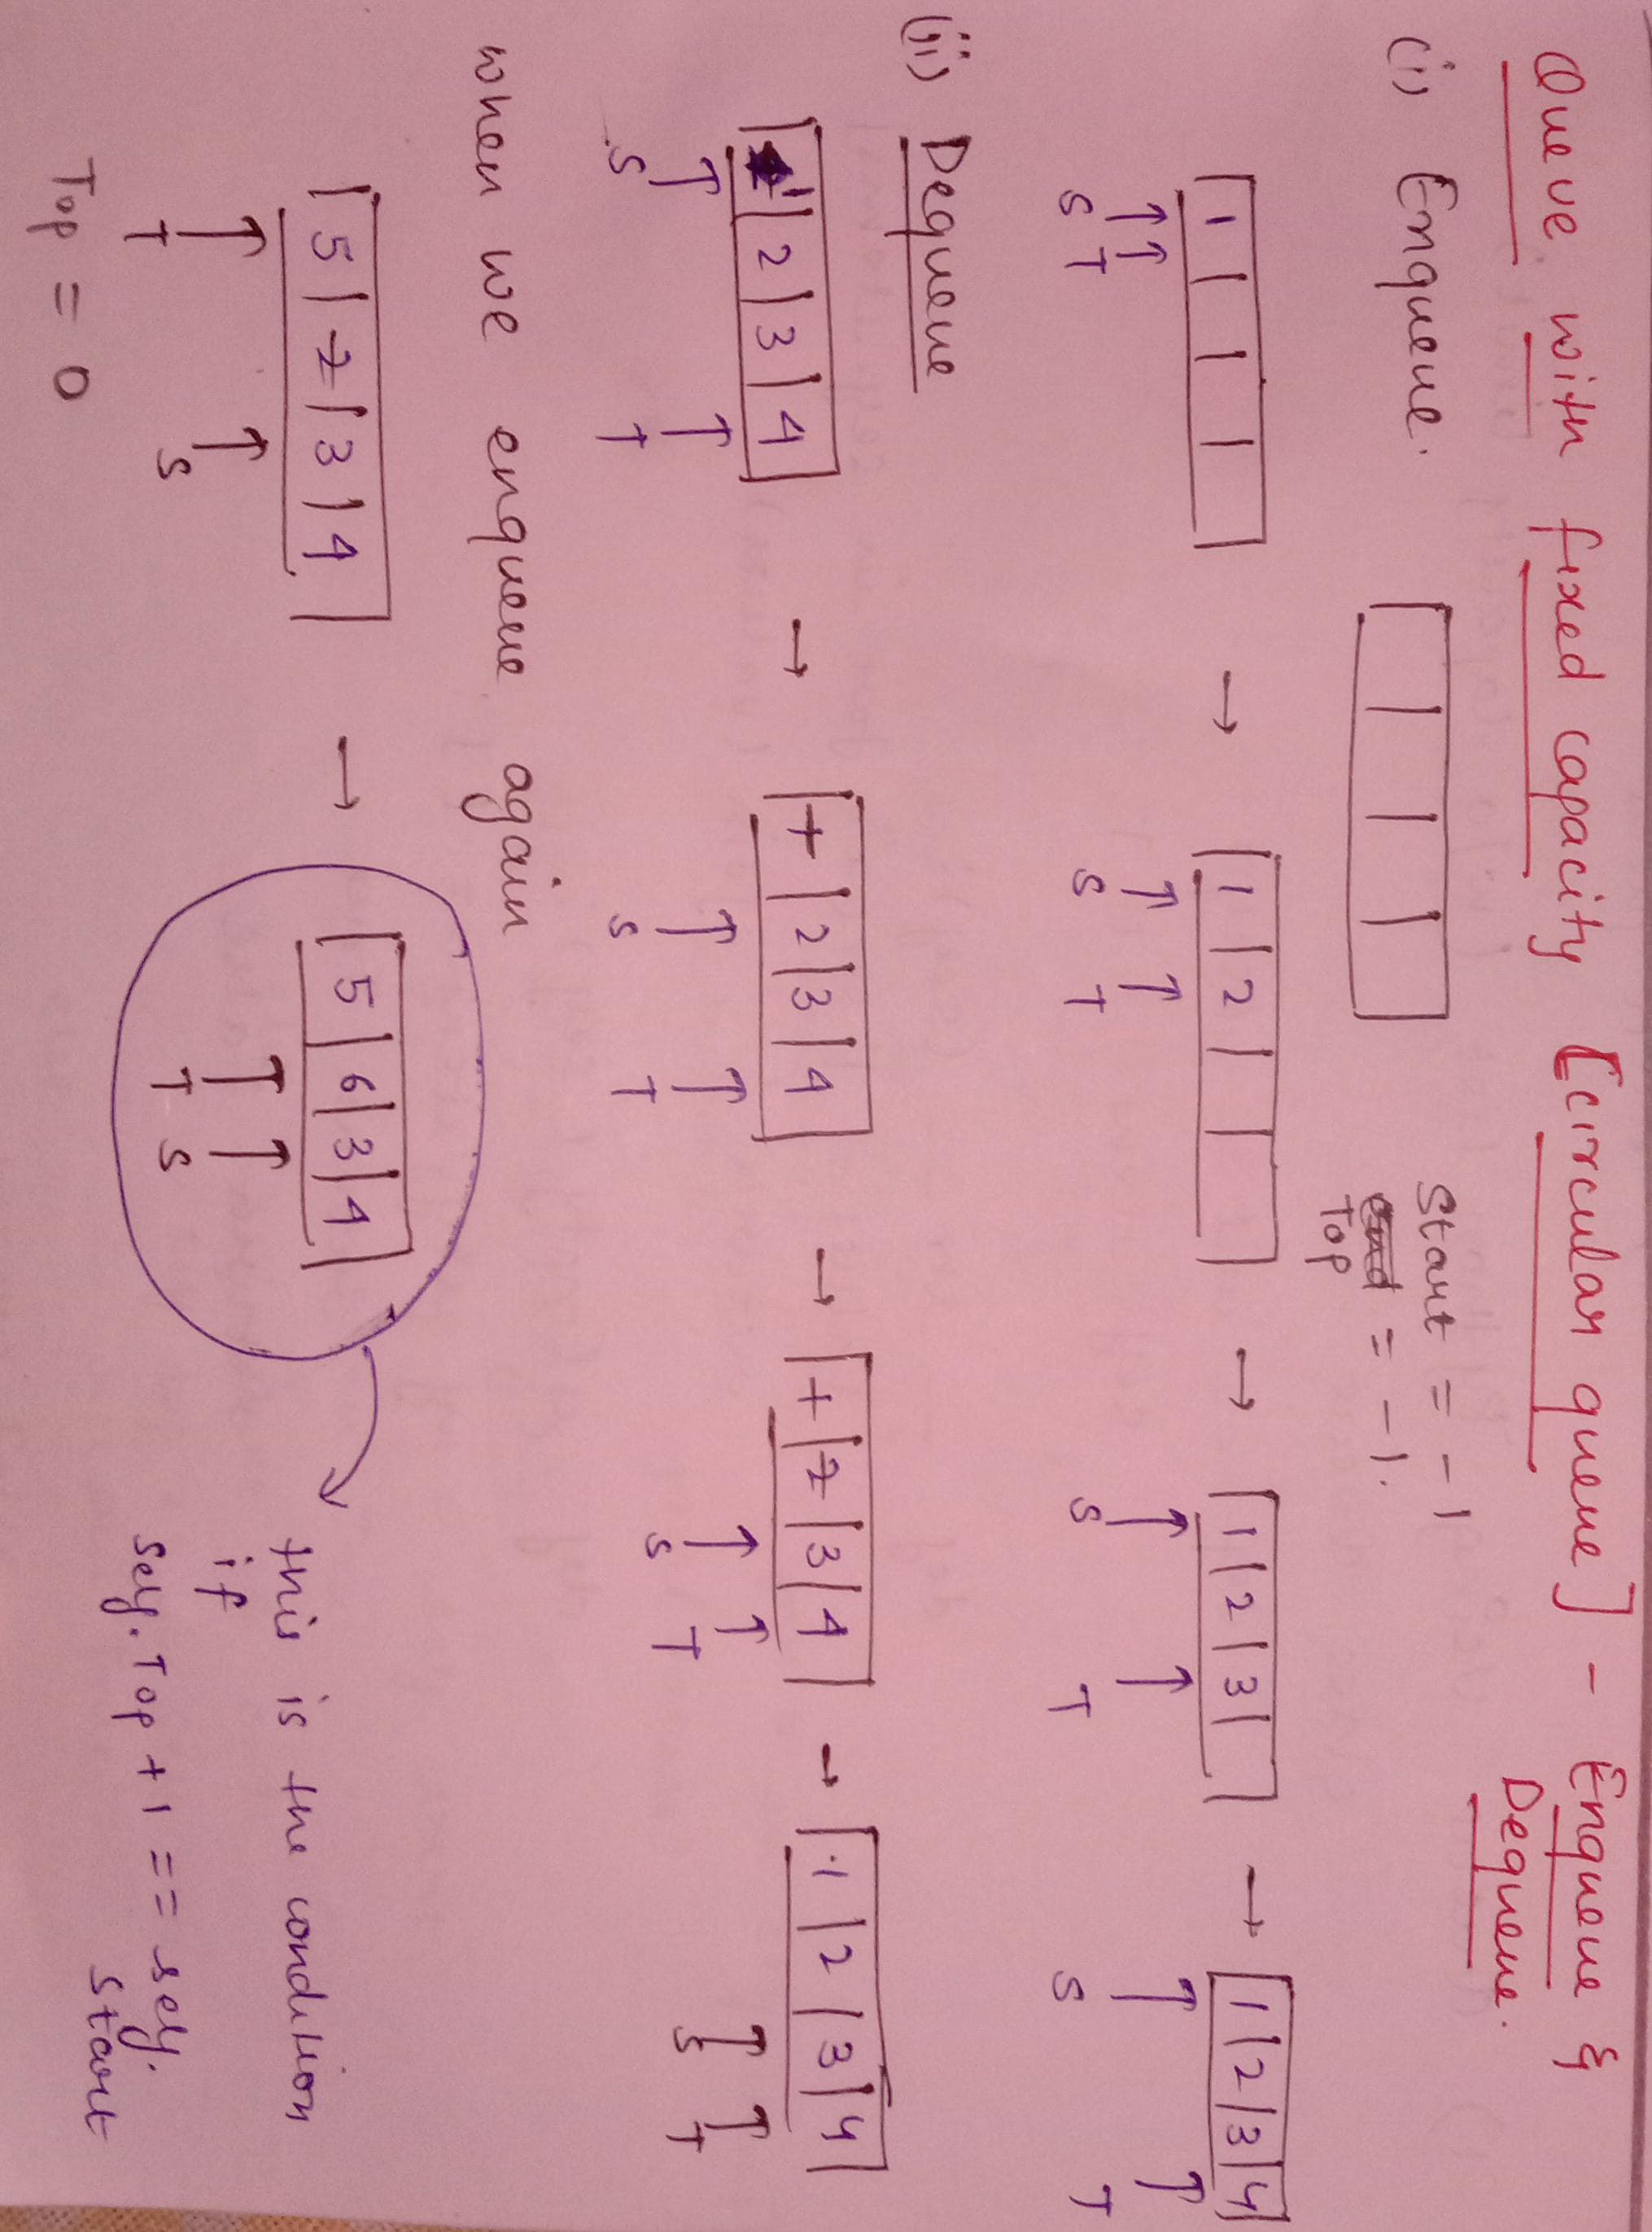 Queue with fixed capacity [Circular queue] - Enqueue &
Dequeue.
(i) Enqueue.
Start = -1
Top = -1.
1
1 2
1 2 3
1 2 3 4
S T
S T
S T
S T
(ii) Dequeue
1 2 3 4
1 2 3 4
1 2 3 4
1 2 3 4
S T
S T
S T
S T
when we enqueue again
5 2 3 4
5 6 3 4
T S
T S
Top = 0
this is the condition
if
self.Top + 1 == self.
Start